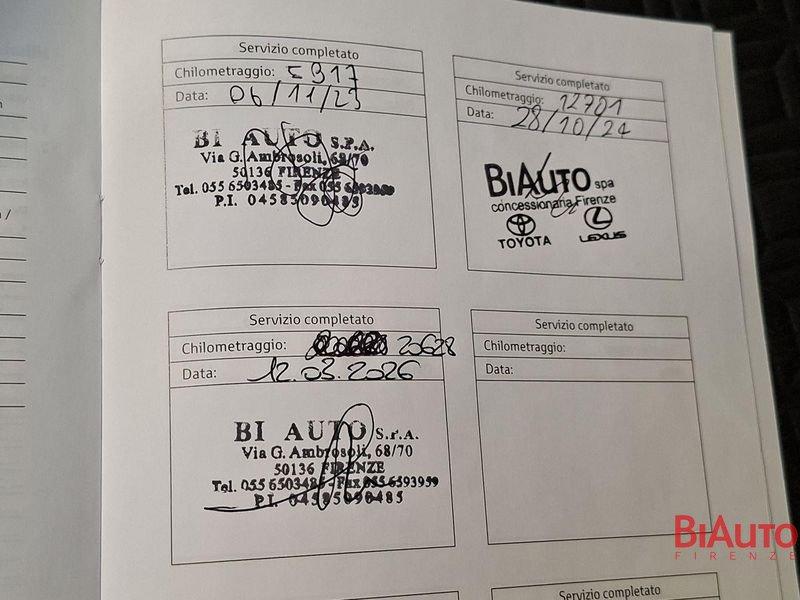 Servizio completato
Chilometraggio: 5917
Data: 06/11/23
BI AUTO S.P.A.
Via G. Ambrosoli, 68/70
50136 FIRENZE
Tel. 055 6503485 - Fax 055 6593959
P.I. 04585090485
Servizio completato
Chilometraggio: 12701
Data: 28/10/24
BIAUTO spa
concessionaria Firenze
TOYOTA LEXUS
Servizio completato
Chilometraggio: 20628
Data: 12.03.2026
BI AUTO S.r.A.
Via G. Ambrosoli, 68/70
50136 FIRENZE
Tel. 055 6503485 - Fax 055 6593959
P.I. 04585090485
Servizio completato
Chilometraggio:
Data:
Servizio completato
Servizio completato
BIAUTO
FIRENZE